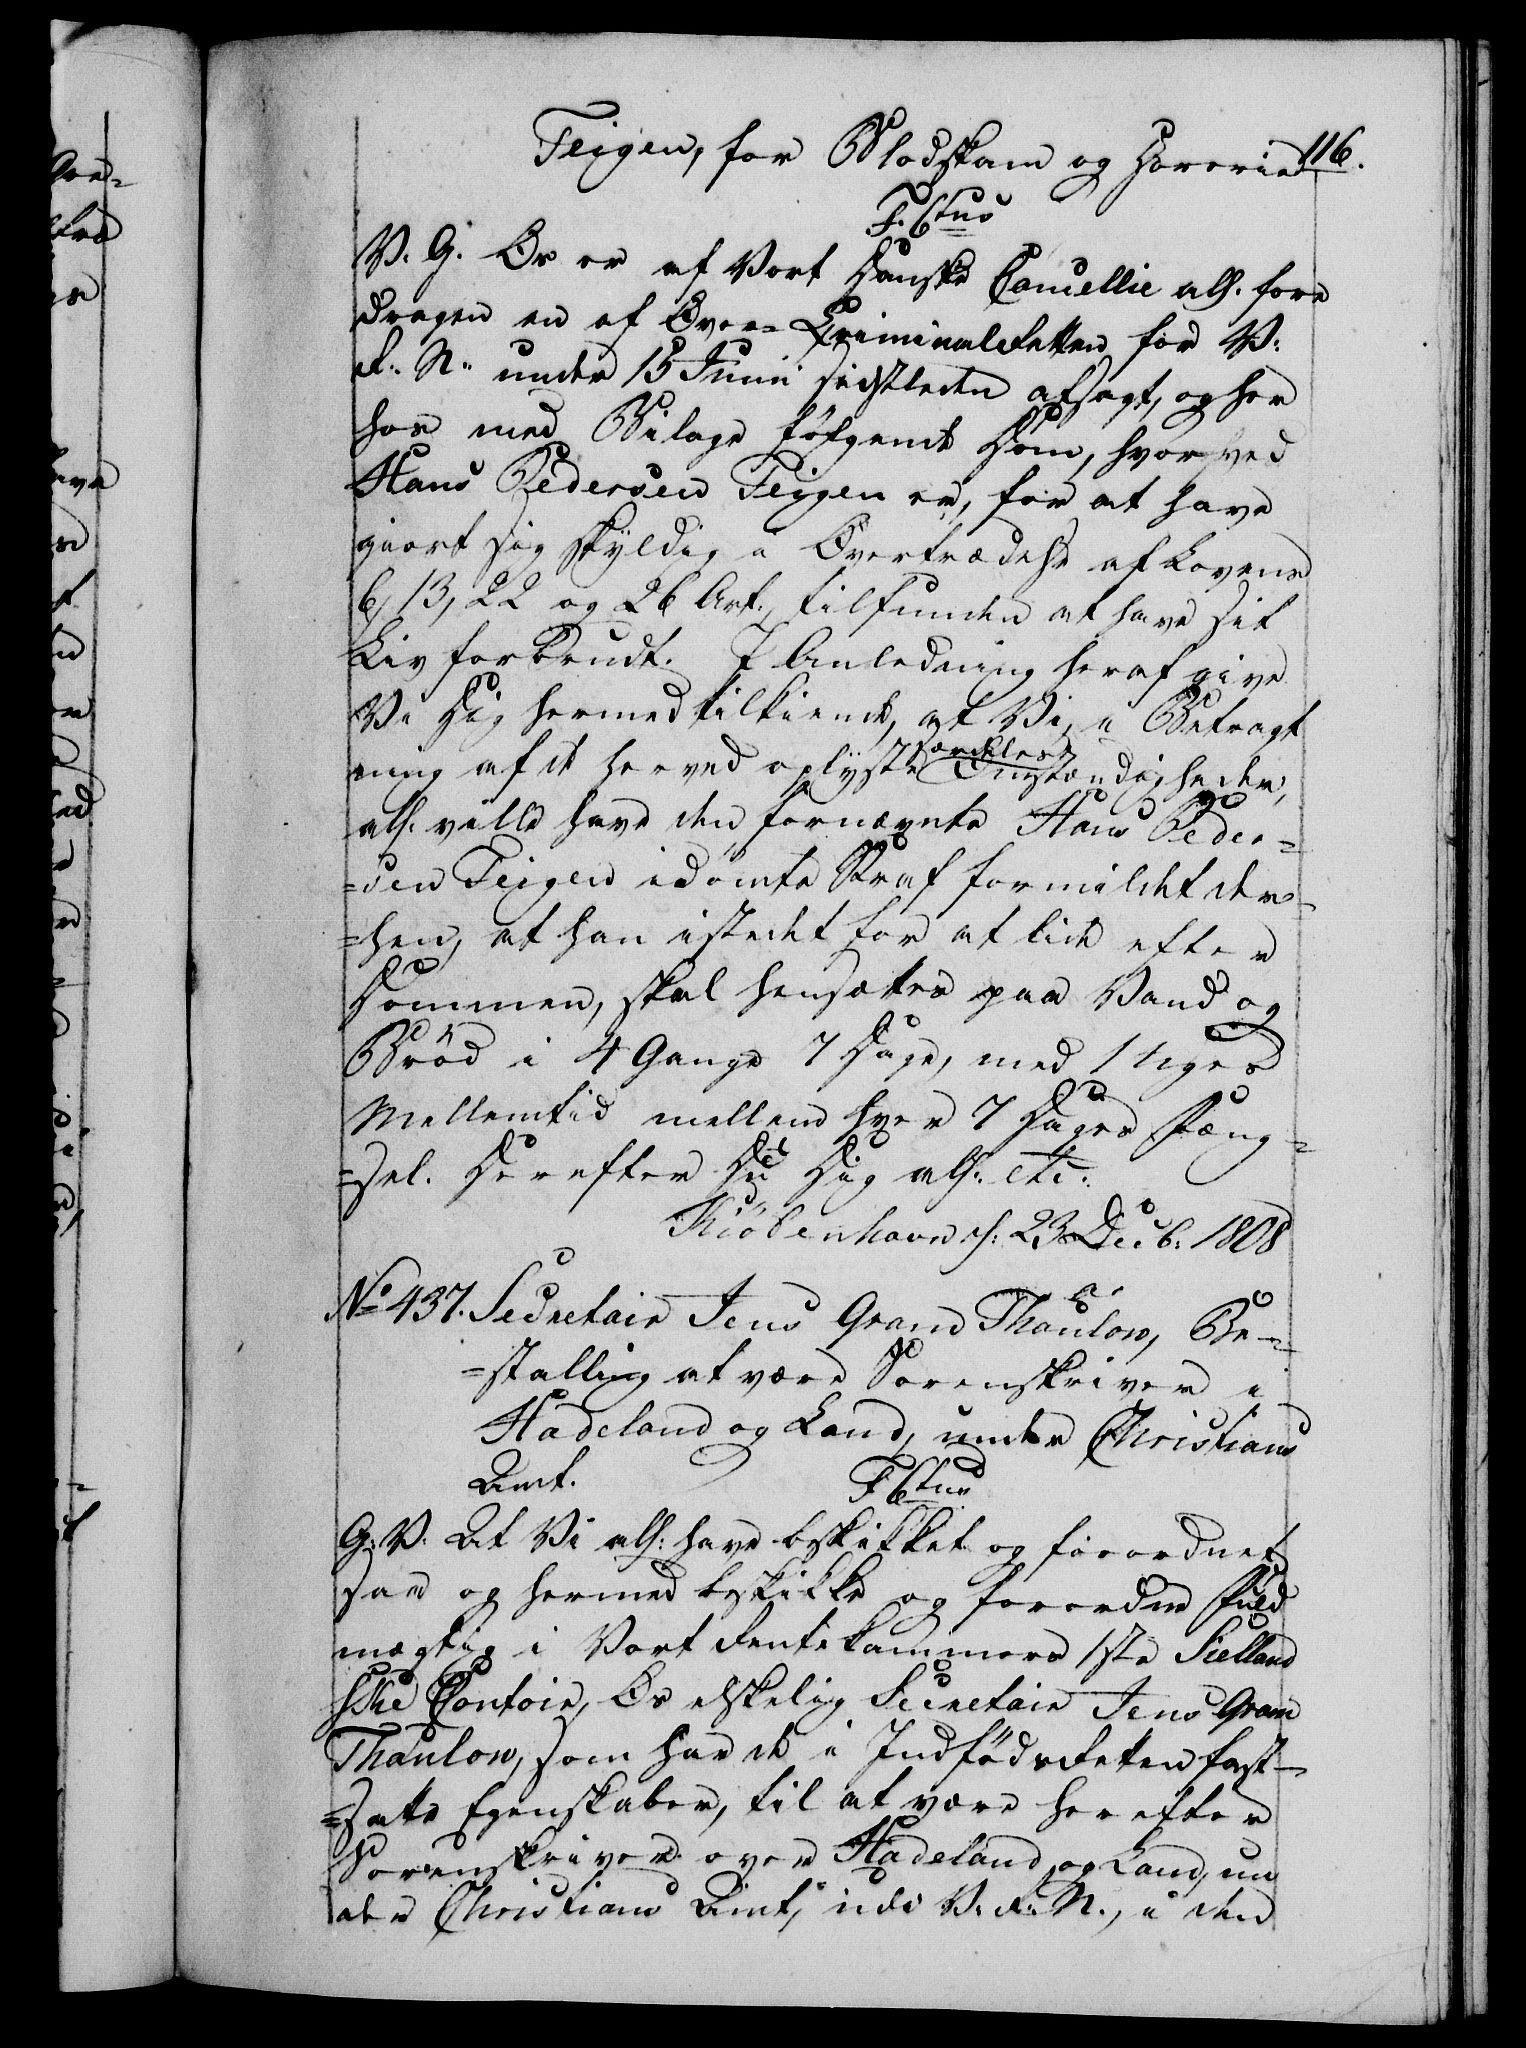 Teigen, for Blodskam og Horerie 116.
F. 6tus
V. G. Os er af Vort Danske Cancellie alh. fore
dragen en af Over- Criminalretten for V:
R. N. under 15 Junii sidstleden afsagt, og her
hos med Bilage følgende Dom, hvorved
Hans Pedersen Teigen er, for at have
giort sig skyldig i Overtrædelse af Lovens
6, 13, 22 og 26 Art., tilfunden at have sit
Liv forbrudt. I Anledning heraf give
Vi Dig hermed tilkiende, at Vi, i Betragt
særdeles
ning af de herved oplyste Omstændigheder,
alh. ville have den fornævnte Hans Peder-
=sen Teigen idømte Straf formildet der-
=hen, at han istedet for at lide efter
Dommen, skal hensættes paa Vand og
Brød i 4 Gange 7 Dage, med 1 Uges
Mellemtid mellem hver 7 Dages Fæng-
=sel. Herefter Du Dig alh. etc.
Kiøbenhavn d: 23 Decb: 1808
No 437. Secretair Jens Gram Thaulow, Be-
=stalling at være Sorenskriver i
Hadeland og Land, under Christians
Amt.
F 6tus
G: V. At Vi alh: have beskikket og forordnet,
saa og hermed beskikke og forordne Fuld
mægtig i Vort Rentekammers 1ste Sielland
ske Contoir, Os elskelig Secretair Jens Gram
Thaulow, som har de i Indfødsretten fast-
=satte Egenskaber, til at være herefter
Sorenskriver over Hadeland og Land, un
der Christians Amt, udi V. R. N., i den